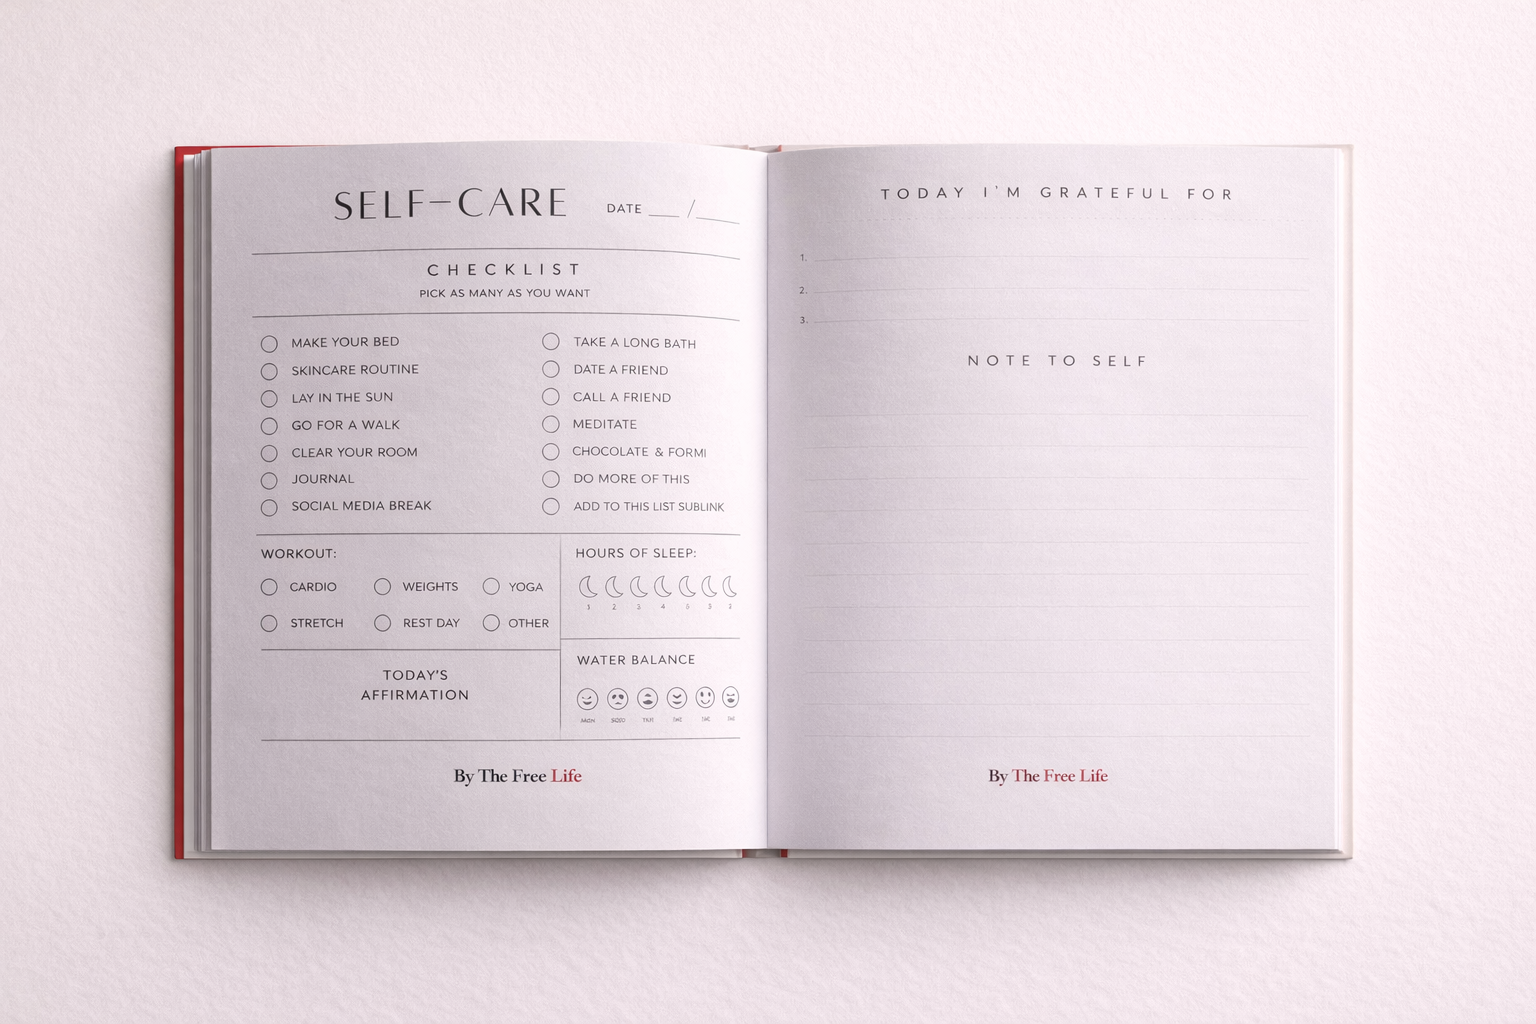 SELF-CARE
DATE ___ /____
CHECKLIST
PICK AS MANY AS YOU WANT
MAKE YOUR BED
SKINCARE ROUTINE
LAY IN THE SUN
GO FOR A WALK
CLEAR YOUR ROOM
JOURNAL
SOCIAL MEDIA BREAK
TAKE A LONG BATH
DATE A FRIEND
CALL A FRIEND
MEDITATE
CHOCOLATE & FORMI
DO MORE OF THIS
ADD TO THIS LIST SUBLINK
WORKOUT:
CARDIO WEIGHTS YOGA
STRETCH REST DAY OTHER
TODAY'S
AFFIRMATION
HOURS OF SLEEP:
1 2 3 4
WATER BALANCE
By The Free Life
TODAY I'M GRATEFUL FOR
1.
2.
3.
NOTE TO SELF
By The Free Life